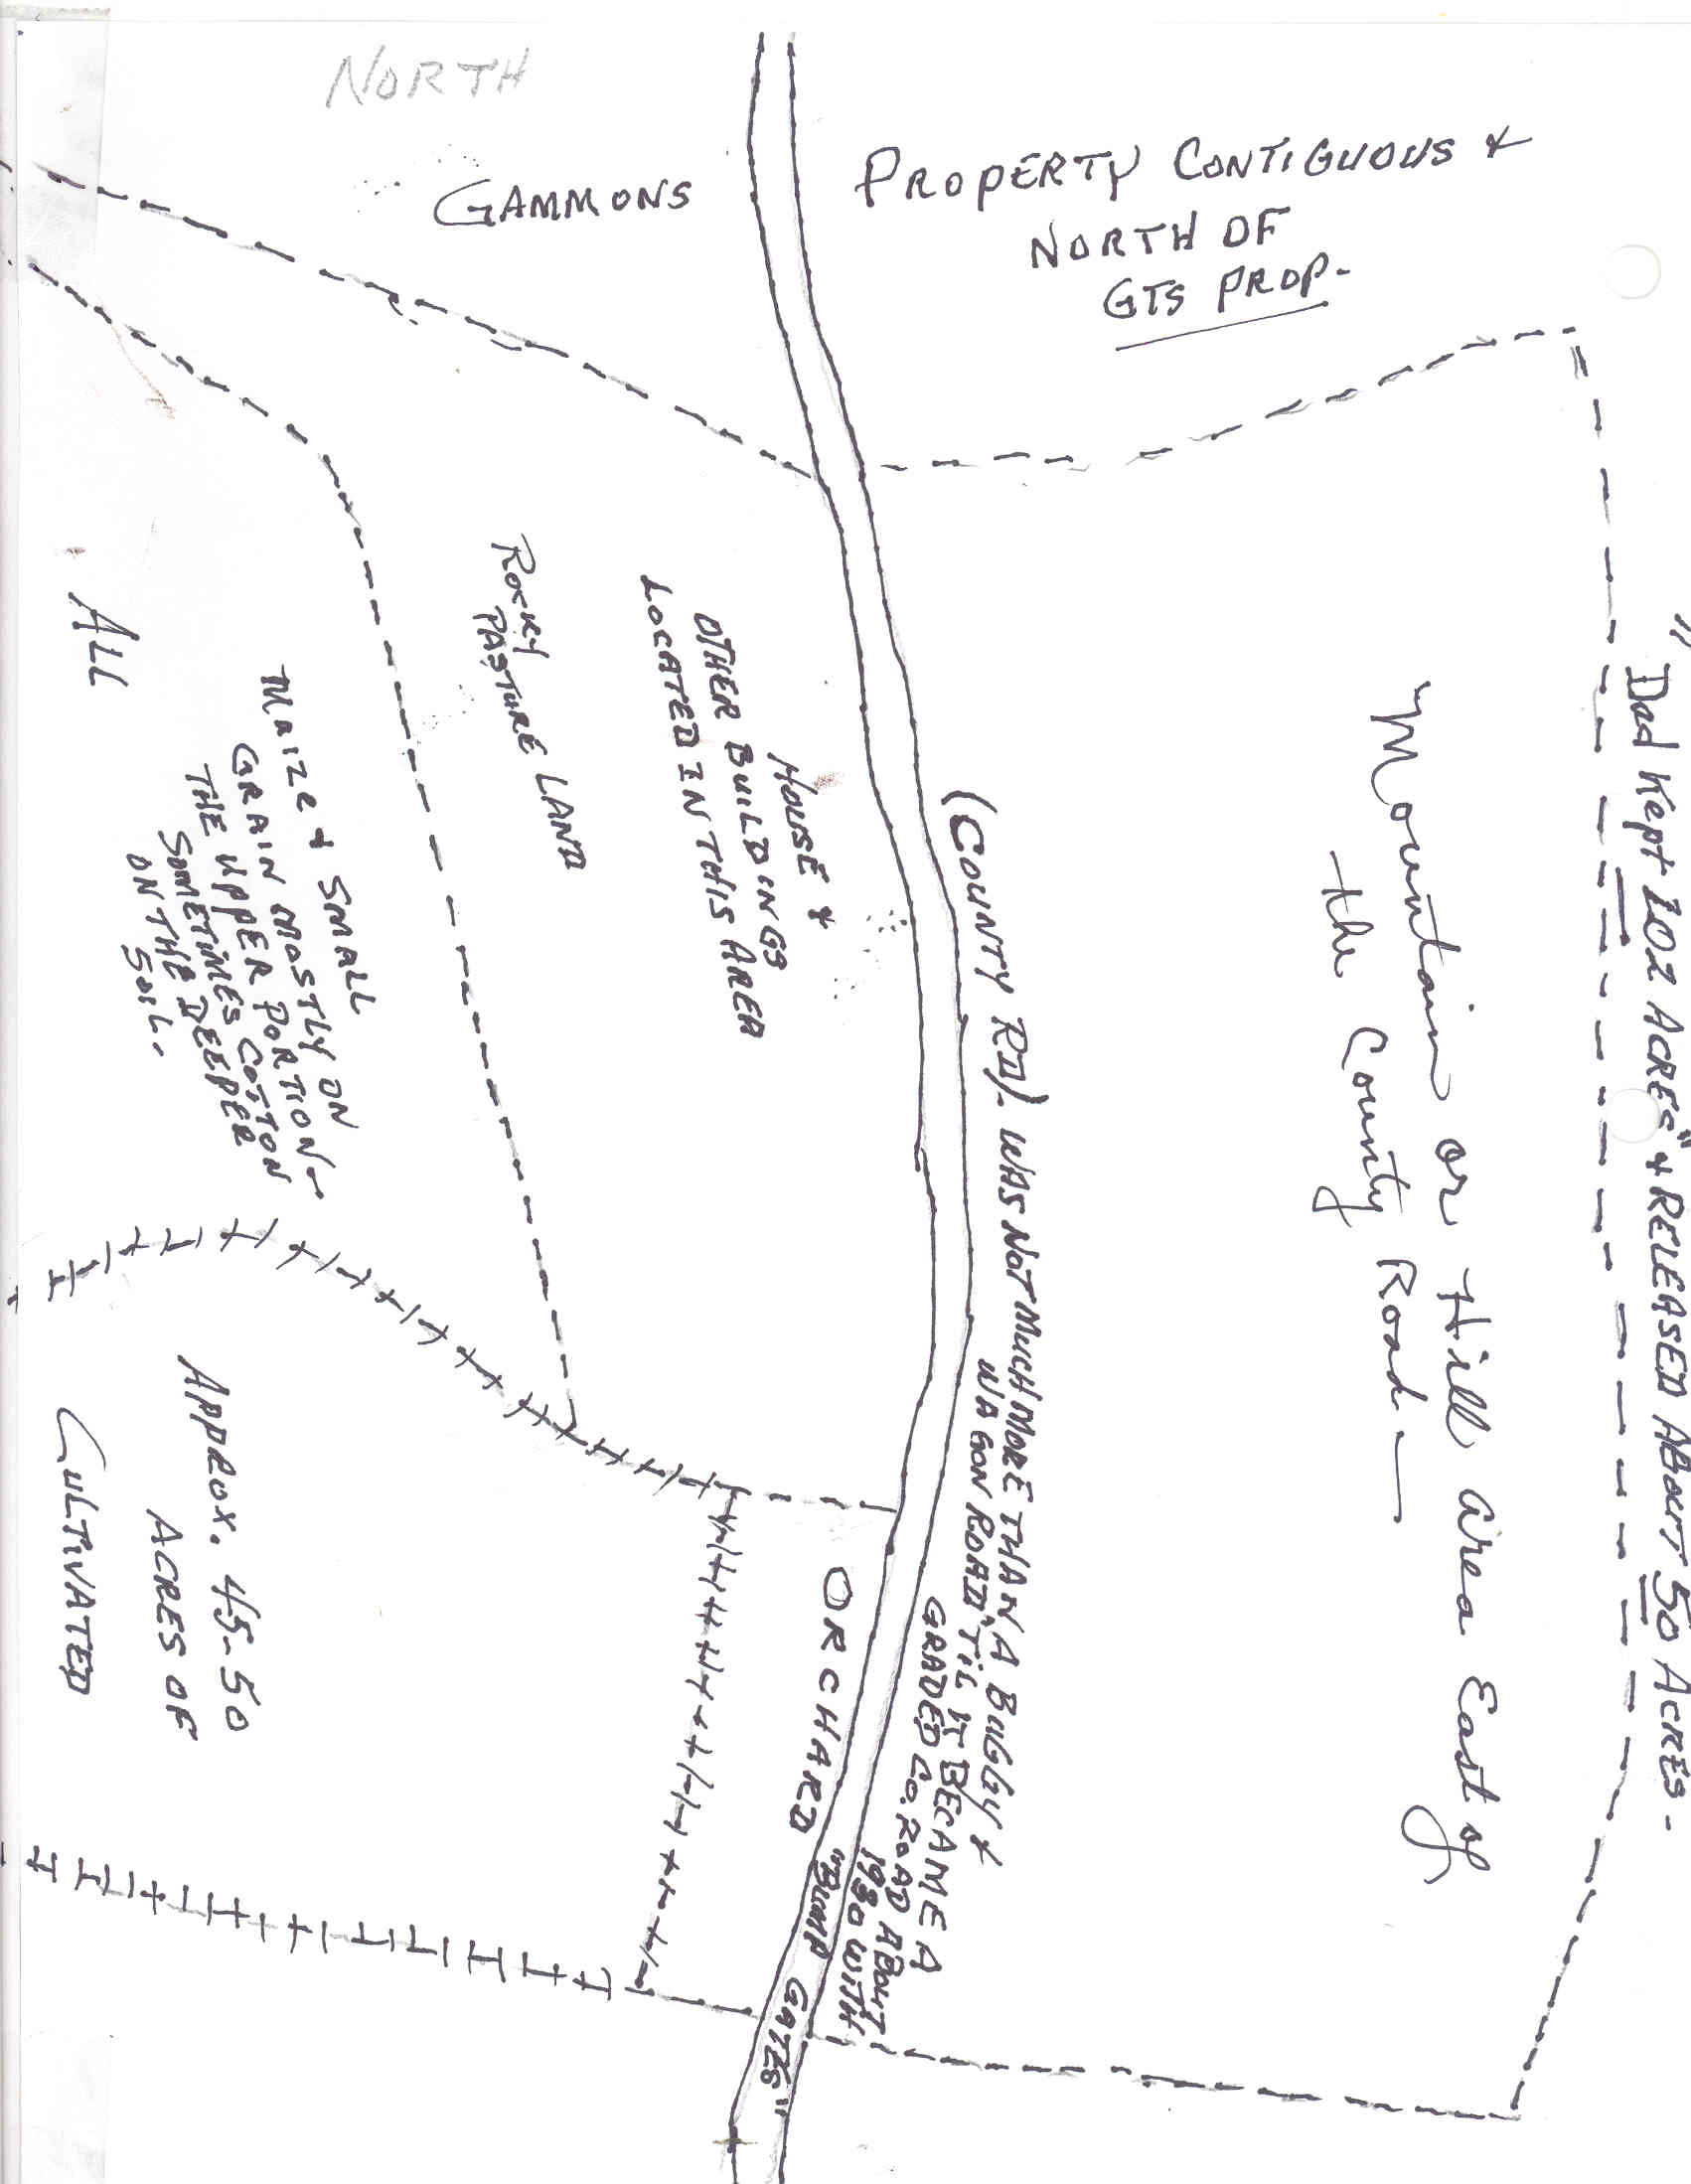 NORTH
GAMMONS
PROPERTY CONTIGUOUS &
NORTH OF
GTS PROP.
"Dad Kept 102 ACRES" & RELEASED ABOUT 50 ACRES-
Mountain or Hill area East of
the County Road —
(COUNTY RD). WAS NOT MUCH MORE THAN A BUGGY &
WAGON ROAD 'TIL IT BECAME A
GRADED CO. ROAD ABOUT
1930 WITH
"BUMP GATES"
HOUSE &
OTHER BUILDINGS
LOCATED IN THIS AREA
ROCKY
PASTURE LAND
ORCHARD
MAIZE & SMALL
GRAIN MOSTLY ON
THE UPPER PORTION-
SOMETIMES COTTON
ON THE DEEPER
SOIL.
ALL
APPROX. 45-50
ACRES OF
CULTIVATED